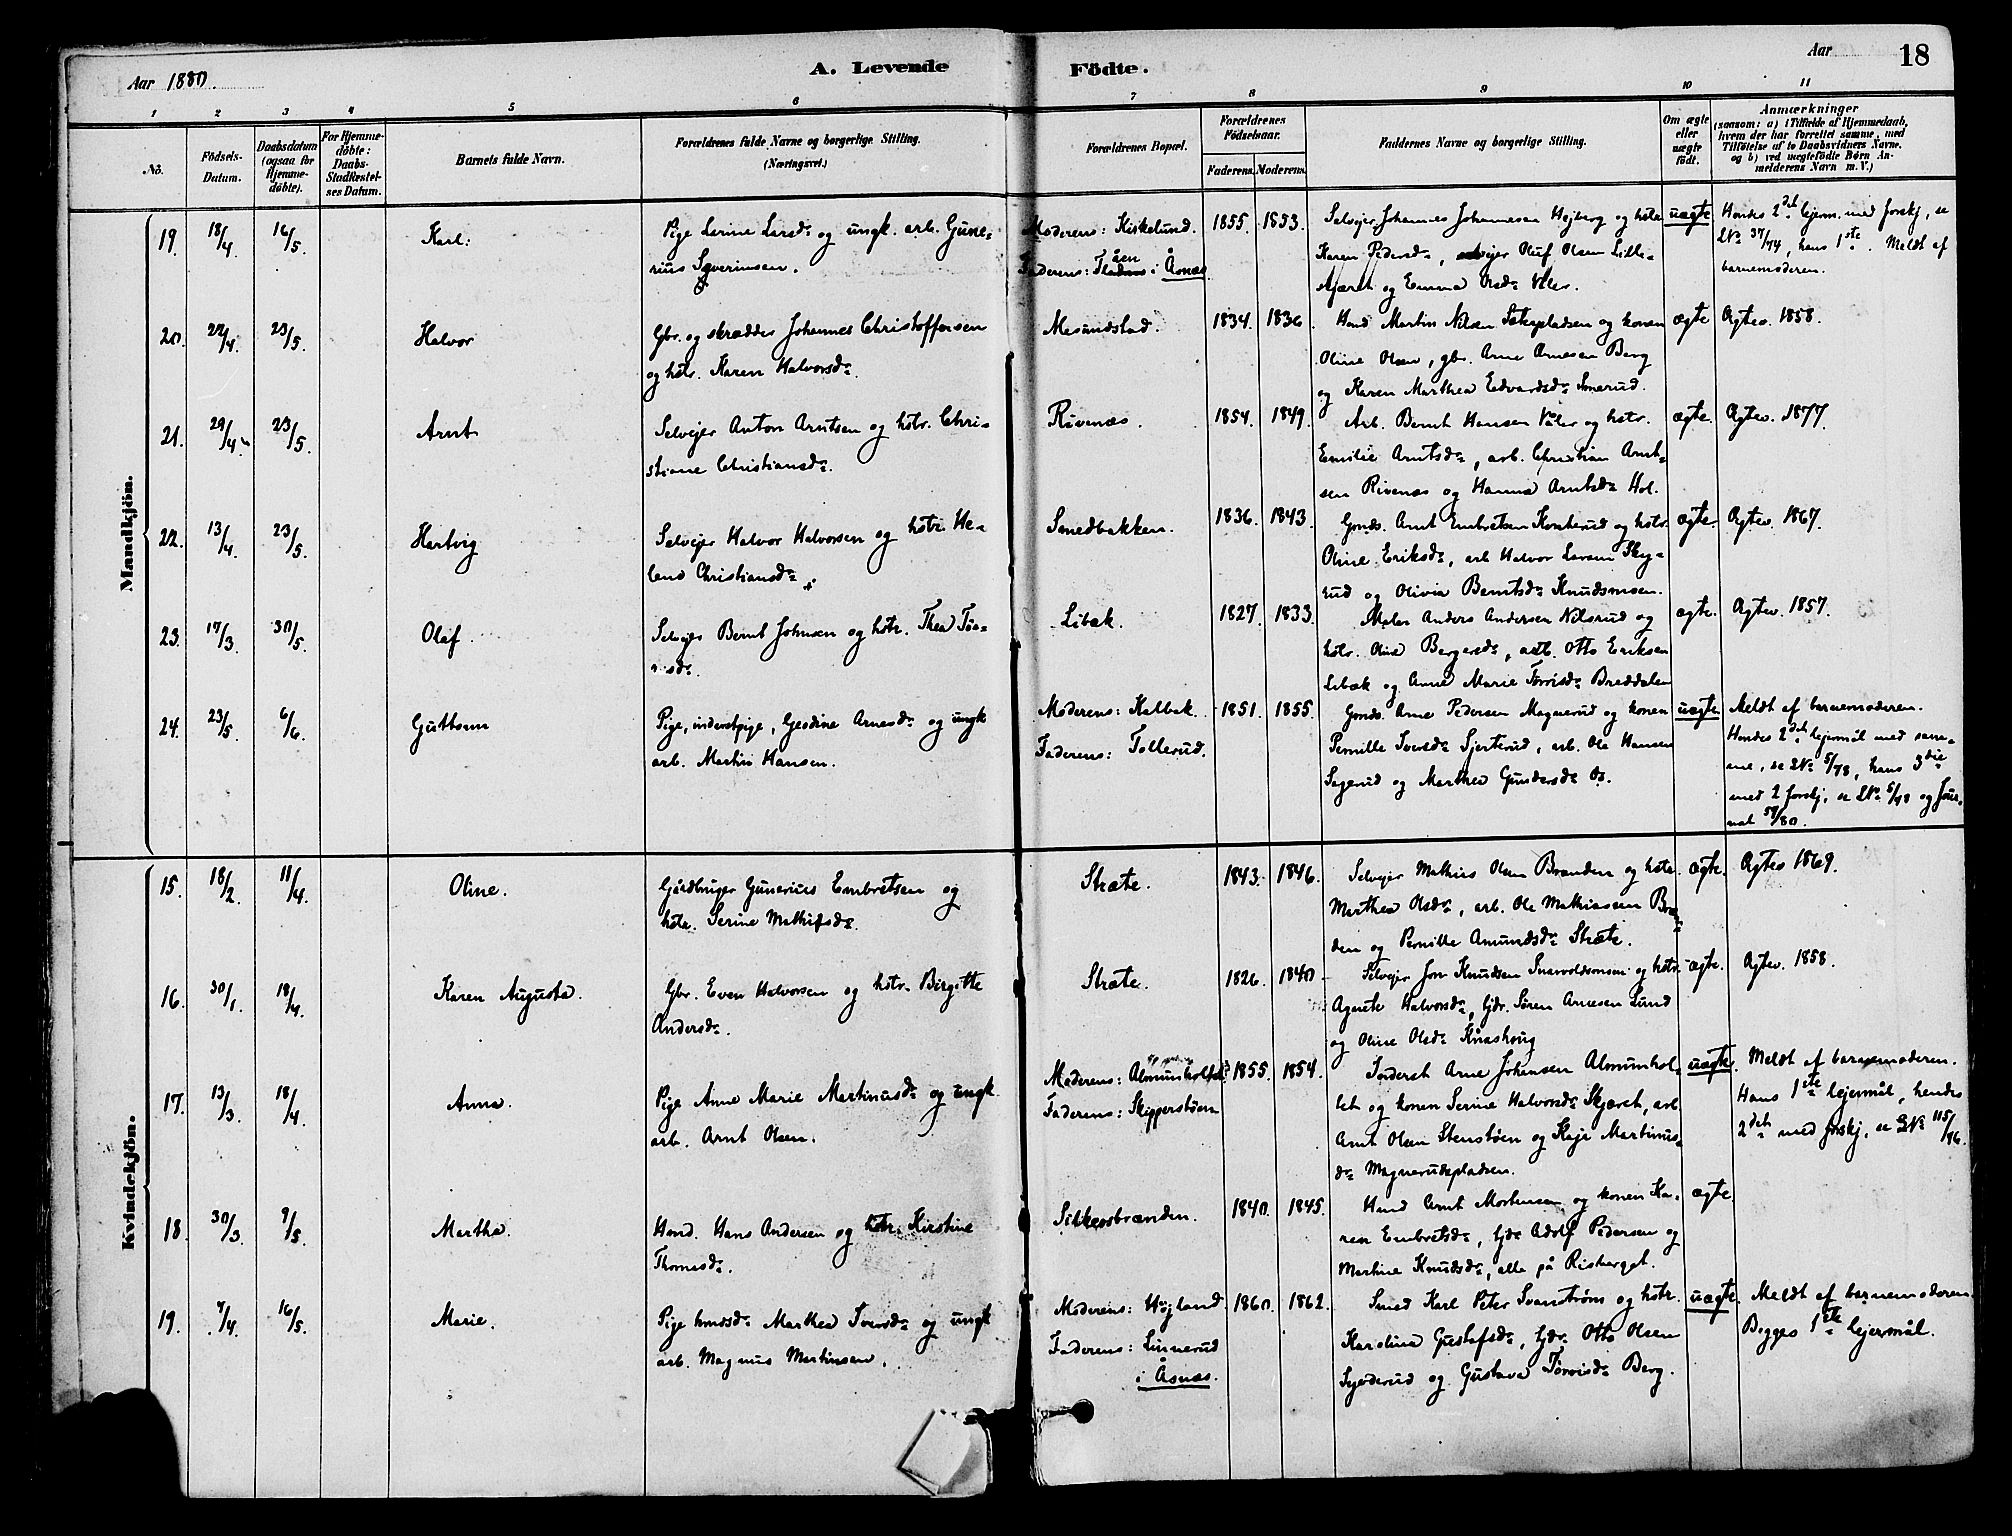 Aar 1880.
A. Levende Födte.
Aar
18
1 2 3 4 5 6 7 8 9 10 11
No.
Födsels-Datum.
Daabsdatum (ogsaa for Hjemme-döbte).
For Hjemme-döbte: Daabs-Stadfæstel-ses Datum.
Barnets fulde Navn.
Forældrenes fulde Navne og borgerlige Stilling. (Næringsvei.)
Forældrenes Bopæl.
Forældrenes Födselsaar.
Faderens. Moderens.
Faddernes Navne og borgerlige Stilling.
Om ægte eller uægte födt.
Anmærkninger (saasom: a) i Tilfælde af Hjemmedaab, hvem der har forrettet samme, med Tilföielse af to Daabsvidners Navne, og b) ved uægtefödte Börn An-melderens Navn m. V.)
Mandkjön.
19. 18/4 16/5. Karl.
Pige Larine Larsd. og ungk. arb. Gune-
rius Severinsen.
Moderens: Kirkelund.
Faderens: åen i Åsnæs
1855. 1853.
Selvejer Johannes Johannesen Hejberg og hstr.
Karen Pedersd., selvejer Oluf Olsen Lille-
kjæret og Emma Olsd. Våler.
uægte
Hendes 2det lejerm. med forskj., se
LNo 37/74, hans 1ste. Meldt af
barnemoderen.
20. 22/4. 23/5. Halvor
Gbr. og skrædder Johannes Christoffersen
og hstr. Karen Halvorsd.
Mesundstad.
1834. 1836.
Hmd Martin Nilsen Sæterpladsen og konen
Oline Olsen, gbr. Arne Arnesen Berg
og Karen Marthea Edvardsd. Smerud.
ægte Ægtev. 1858.
21. 29/4. 23/5. Arnt
Selvejer Anton Arntsen og hstr. Chri-
stiane Christiansd.
Rivenæs.
1854. 1849.
Arb. Bernt Hansen Våler og hstr.
Emilie Arntsd., arb. Christian Arnt-
sen Rivenæs og Hanna Arntsd. Hol.
ægte. Ægtev. 1877.
22. 13/4. 23/5. Hartvig
Selvejer Halvor Halvorsen og hstr. He-
lene Christiansd.
Smedbakken.
1836. 1843.
Gmds. Arnt Embretsen Komterud og hstr.
Oline Eriksd., arb. Halvor Larsen Sky-
rud og Olivia Berntsd. Knudsmoen.
ægte. Ægtev. 1867.
23. 17/3. 30/5. Olaf.
Selvejer Bernt Johnsen og hstr. Thea Tor-
sd.
Libæk.
1827. 1833.
Maler Anders Andersen Nilsrud og
hstr. Oline Bergersd., arb. Otto Eriksen
Libæk og Anne Marie Torrisd. Breddalen
ægte. Ægtev. 1857.
24. 23/5. 6/6. Guttorm
Pige, inderstpige, Gesdine Arnesd. og ungk
arb. Martin Hansen.
Moderens: Kalbæk.
Faderens: Tollerud.
1851. 1855.
Gmds. Arne Pedersen Magnerud og konen
Pernille Iversd. Sjerterud, arb. Ole Hansen
Sagerud og Marthea Gundersd. Os.
uægte.
Meldt af barnemoderen.
Hendes 2det lejermål med sam-
me, se LNo 5/78, hans 3die
med 2 forskj., se LNo 5/78 og Jour-
nal 58/80.
Kvindekjön.
15. 18/2. 11/4. Oline.
Gårdbruger Gunerius Embretsen og
hstr. Serine Mathisd.
Stræte.
1843. 1846.
Selvejer Mathias Olsen Brænden og hstr.
Marthea Olsd., arb. Ole Mathiassen Bræn-
den og Pernille Amundsd. Stræte.
ægte. Ægtev 1869.
16. 30/1. 18/4. Karen Augusta.
Gbr. Even Halvorsen og hstr. Birgitte
Andersd.
Stræte.
1826. 1840
Selvejer Jon Knudsen Snarvoldsmoen og hstr.
Agnete Halvorsd., tjdr. Søren Arnesen Lund
og Oline Olsd. Knashoug
ægte. Ægtev. 1858.
17. 13/3. 18/4. Anna.
Pige Anne Marie Martinusd. og ungk
arb. Arnt Olsen.
Moderens: Almunholtet
Faderens: Skipperstøen
1855. 1854.
Inderst Arne Johansen Almunhol-
tet og konen Serine Halvorsd. Skjæret, arb.
Arnt Olsen Stenstøen og Kaja Martinus-
d. Magnerudspladsen.
uægte.
Meldt af barnemoderen.
Hans 1ste lejermål, hendes
2det med forskj. se LNo 115/76.
18. 30/3. 9/5. Martha.
Hmd. Hans Andersen og hstr. Kirstine
Thomasd.
Sikkesbrænden.
1840. 1845.
Hmd Arnt Mortensen og konen Ka-
ren Embretsd., tjdr Adolf Pedersen og
Martine Knudsd., alle på Risberget.
ægte.
19. 7/4. 16/5. Marie.
Pige hmdsd. Marthea Iversd. og ungk
arb. Magnus Martinsen.
Moderens: Højland
Faderens: Linnerud
i Åsnæs.
1860. 1862.
Smed Karl Peter Svanstrøm og hstr.
Karolina Gustafsd., tjdr. Otto Olsen
Sjerderud og Gustava Torrisd. Berg.
uægte.
Meldt af barnemoderen
Begges 1ste lejermål.